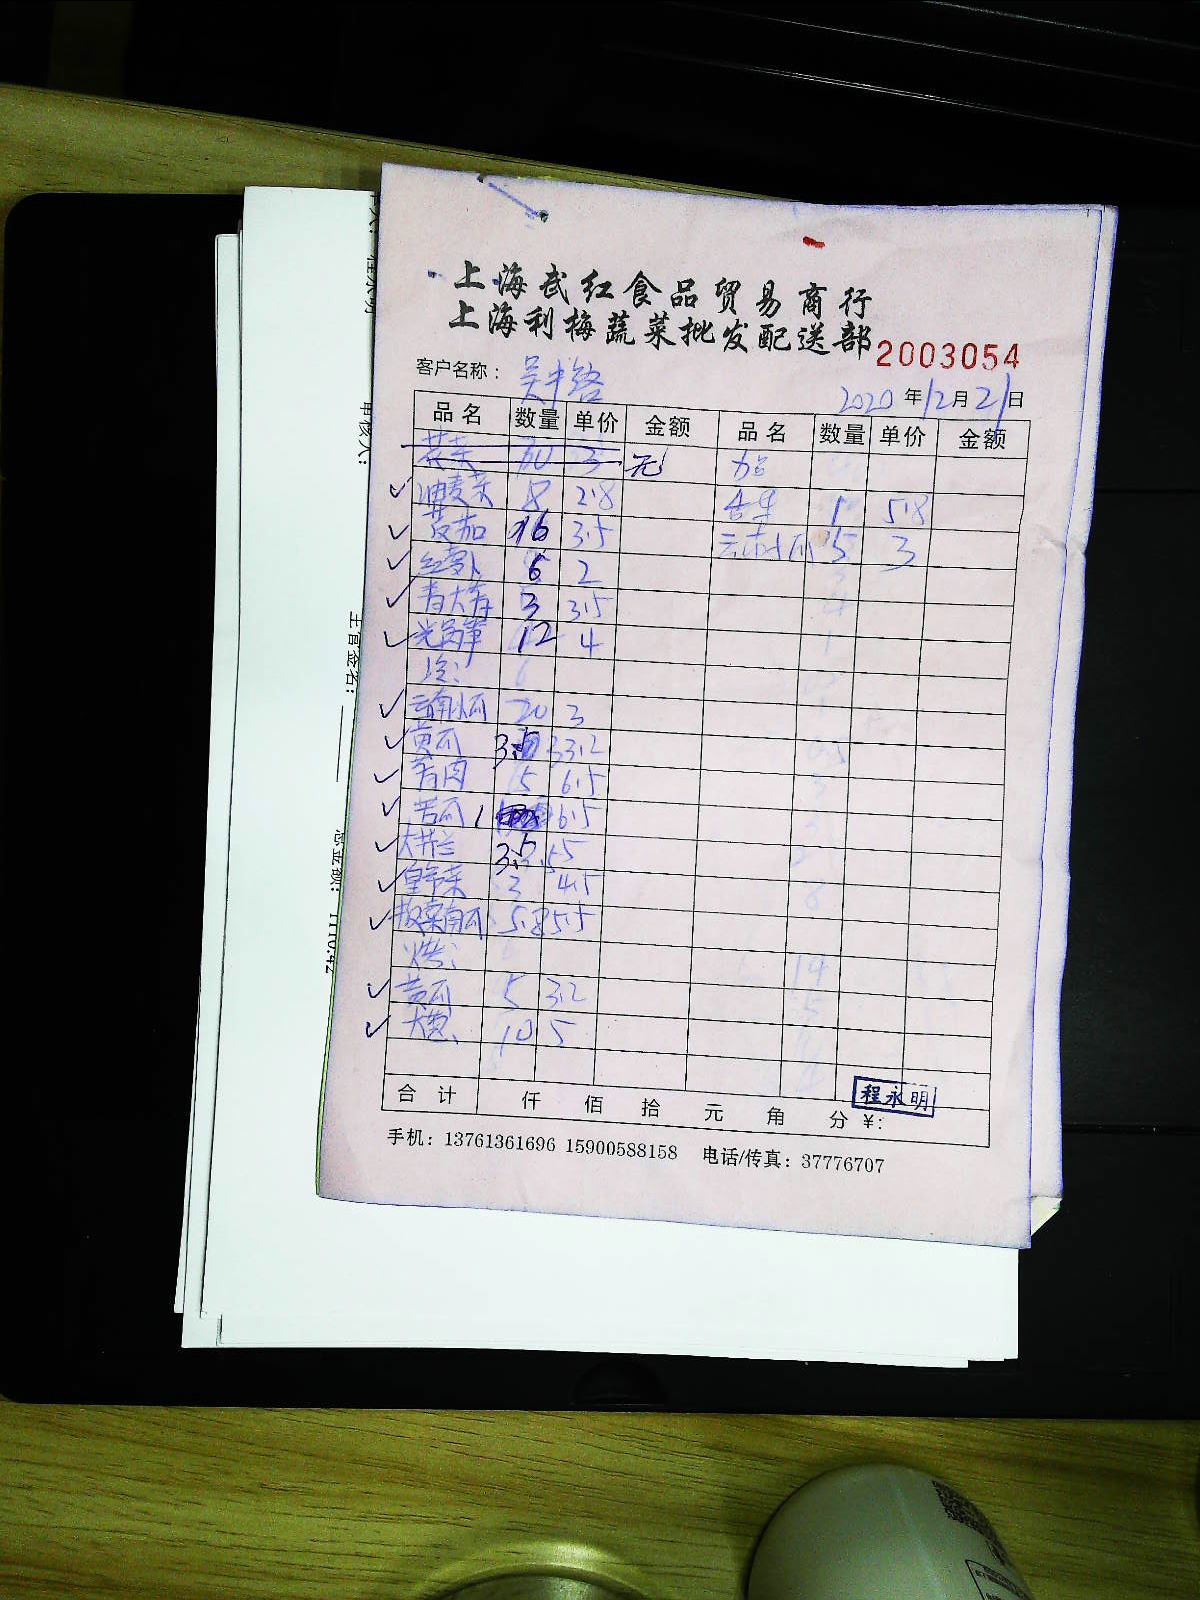 上海武红食品贸易商行
上海利梅蔬菜批发配送部
2003054
客户名称： 吴中路
2020 年 12 月 21 日
品名 数量 单价 金额 品名 数量 单价 金额
花菜 3 无
油麦菜 8 2.8 1 5.8
茄 16 3.5 5 3
红萝卜 6 2
青大椒 3 3.5
12 4
冷：
云南小瓜 20 3
黄瓜 3.5 3.2
5 6.5
苦瓜 1 6.5
3.5 5
皇帝菜 2 4.5
板栗南瓜 5.8 5.5
烤：
黄瓜 5 3.2
大葱 10 5
合计 仟 佰 拾 元 角 分 ¥：
程永明
手机：13761361696 15900588158 电话/传真：37776707
审核人：
主管签名：
总金额：1110.42